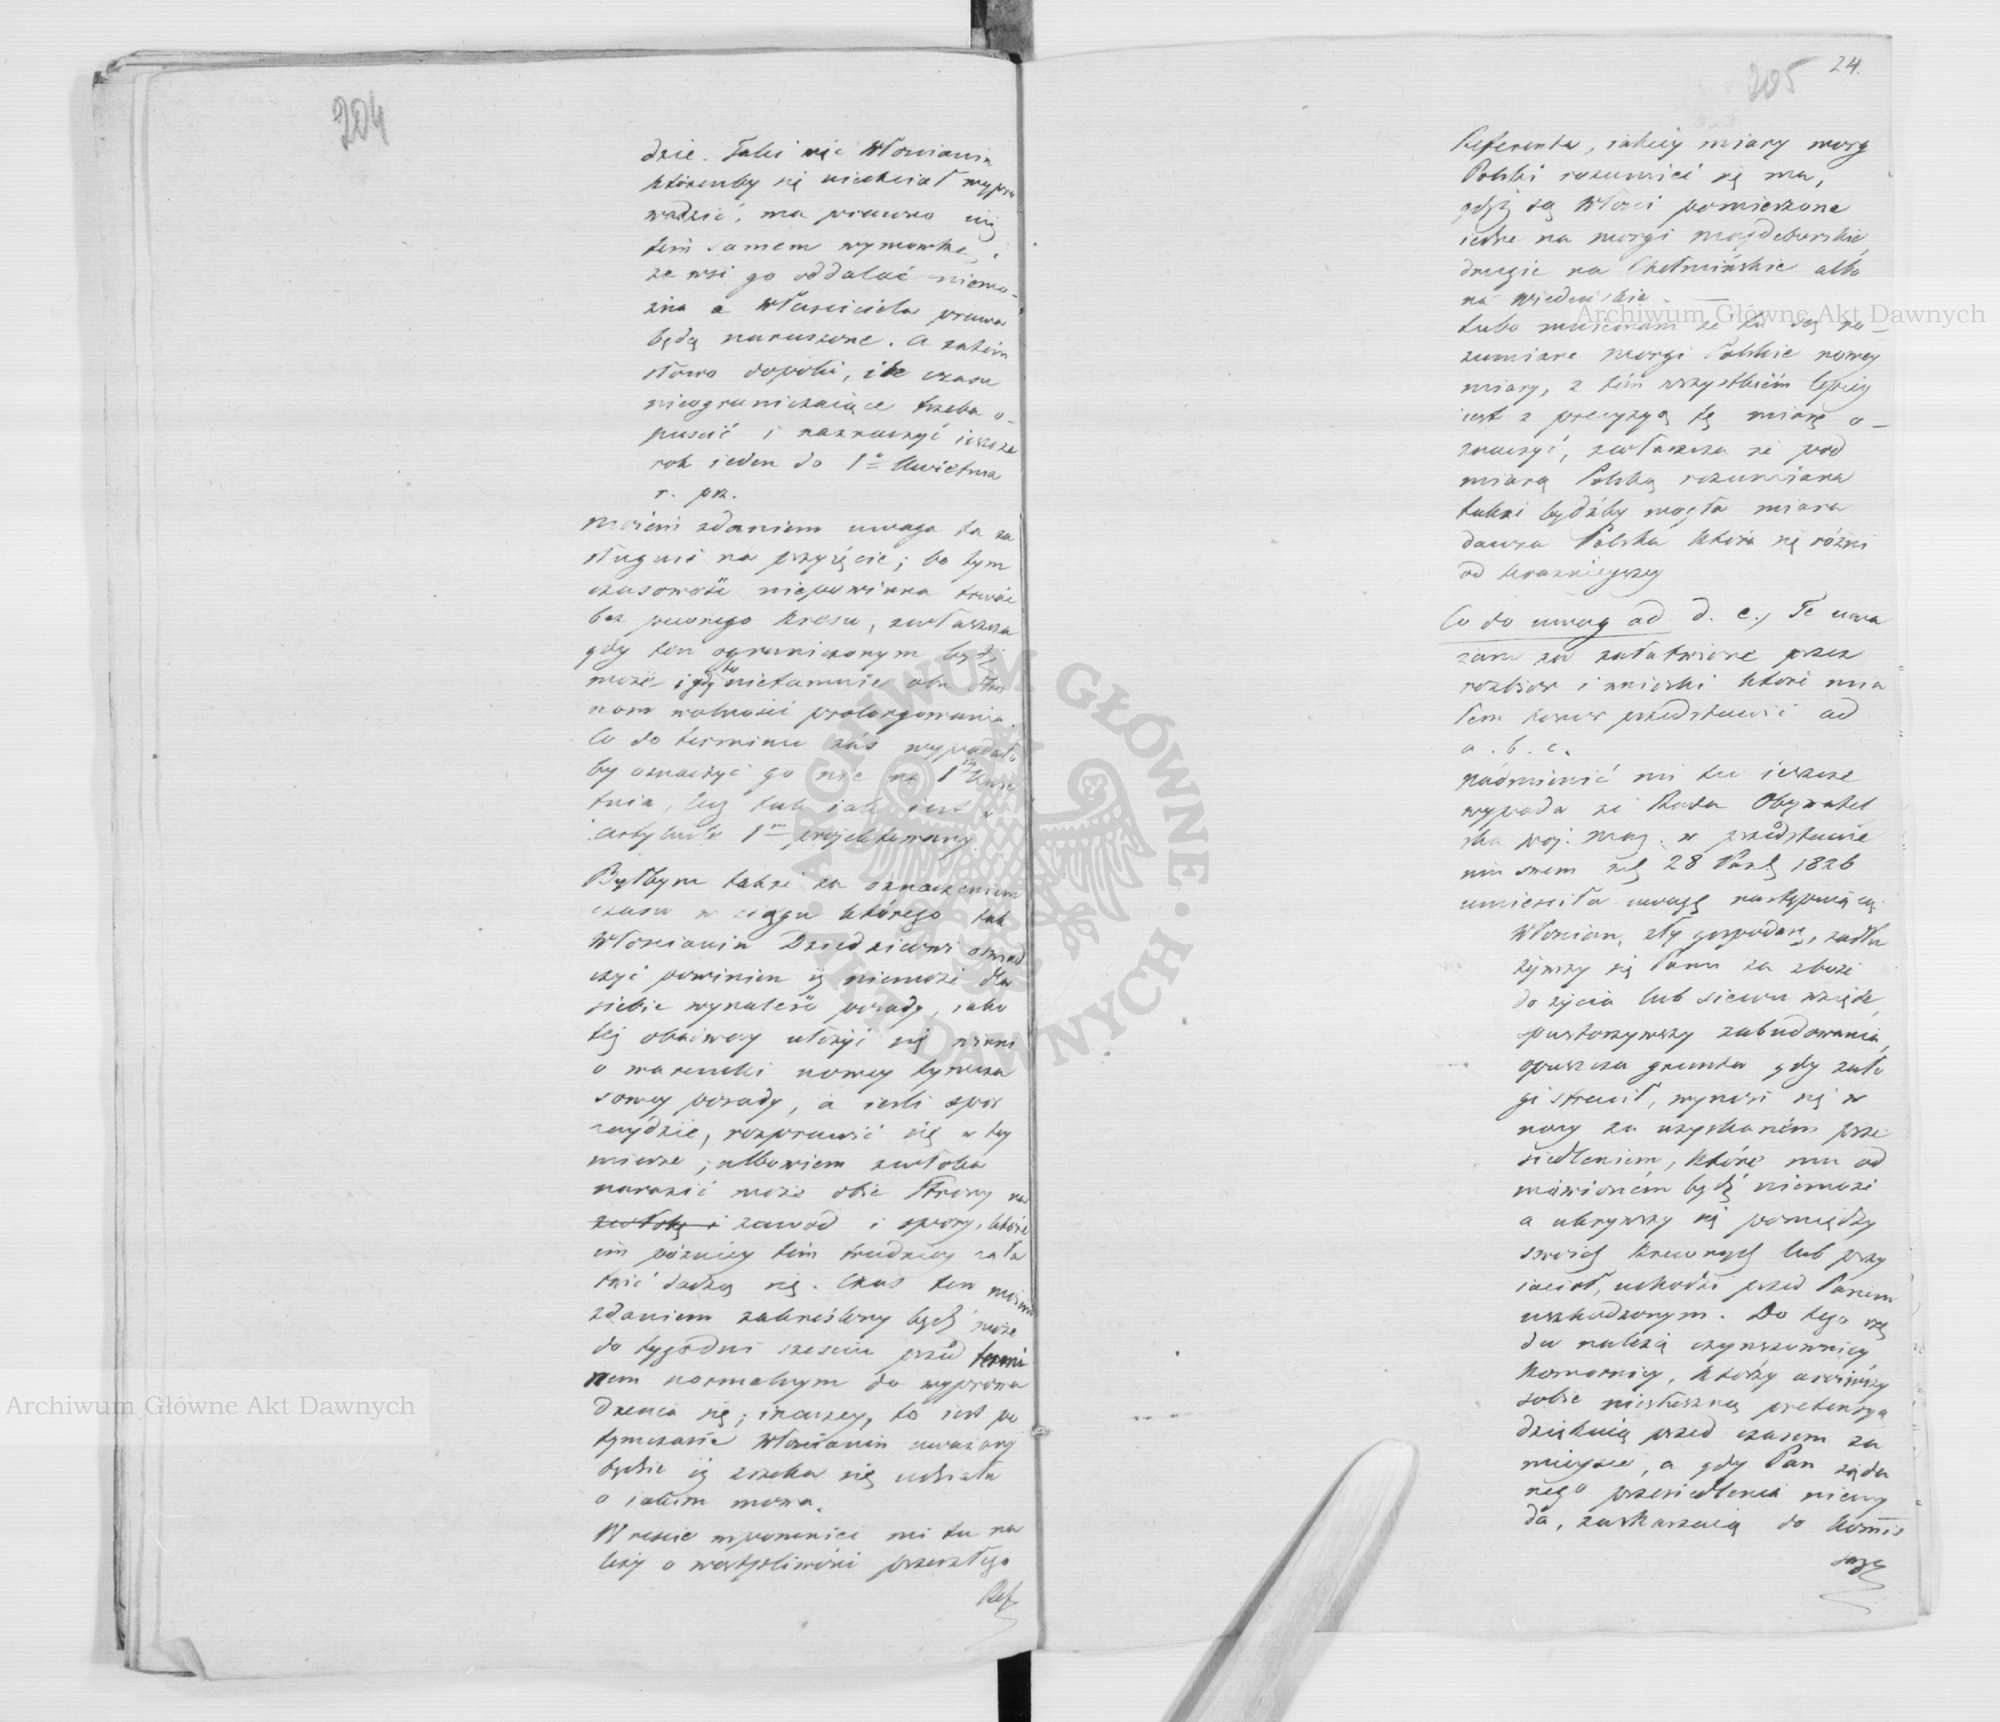 204
dzie. Taki więc Włościanin
którenby się niechciał wypro
wadzić, ma prawną iuż
tem samem wymowkę,
ze wsi go oddalać niemo-
żna a Właściciela prawa
będą naruszone. A zatém
słowo dopóki, ile czasu
nieograniczaiące trzeba o-
puścić i naznaczyć ieszcze
rok ieden do 1° Kwietnia
r. prz.
Moiém zdaniem uwaga ta za
sługuie na przyięcie; bo tym
czasowość niepowinna trwać
bez pewnego kresu, zwłaszcza
gdy ten ograniczonym bydź
może i gdy to nietamuie obu stro
nom wolności prolongowania.
Co do terminu zaś wypadało
by oznaczyć go nie na 1° Kwie
tnia, lecz tak iak iest w
Artykule 1m proiektowany.
Byłbym także za oznaczeniem
czasu w ciągu którego tak
Włościanin Dziedzicowi oswiad
czyć powinien iż niemoże dla
siebie wynaleść posady, iako
też obaiwey ułożyć się winni
o warunki nowey tymcza
sowey posady, a ieśli spór
zaydzie, rozprawić się w tey
mierze; albowiem zwłoka
narazić może obie strony na
zwłokę i zawód i spory, które
im pózniey tém trudniey zała
twić dadzą się. Czas ten moiem
zdaniem zakreślony bydź może
do tygodni sześciu przed termi
nem normalnym do wyprowa
dzenia się; inaczey, to iest po
tymczasie Włościanin uważany
będzie iż zrzeka się udziału
o iakim mowa.
W reście wspomnieć mi tu na
leży o wątpliwości przeszłego
Ref
205
24.
Referenta, iakiey miary morg
Polski rozumieć się ma,
gdyż są Włości pomierzone
iedne na morgi magdeburskie,
drugie na Chełmińskie albo
na wiedeńskie. —
Lubo mniemam że tu są ro-
zumiane morgi Polskie nowey
miary, z tém wszystkiém lepiey
iest z precyzyą tę miarę o-
znaczyć, zwłaszcza że pod
miarą Polską rozumiana
także bydźby mogła miara
dawna Polska która się różni
od teraznieyszey
Co do uwag ad d. e., Te uwa
żam za załatwione przez
rozbiór i wnioski które mia
łem honor przedstawić ad
a. b. c.
Nadmienić mi tu ieszcze
wypada że Rada Obywatel
ska woj. Maz. w przedstawie
niu swem z d. 28 Paźd. 1826
umieściła uwagę następuiącą:
Włościan, zły gospodarz, zadłu
żywszy się Panu za zboże
do życia lub siewu wzięte,
spustoszywszy zabudowania,
opuszcza grunta gdy zało
gi stracił, wynosi się w
nocy za uzyskaném prze
siedleniem, które mu od
mówioném bydź niemoże
a ukrywszy się pomiędzy
swoich krewnych lub przy
iaciół, uchodzi przed Panem
uszkodzonym. Do tego rzę
du należą czynszownicy
komornicy, którzy uroiwszy
sobie niesłuszną pretensyą
dziękuią przed czasem za
mieysce, a gdy Pan żąda
nego przesiedlenia niewy
da, zaskarzaią do Kommis
sarza
Archiwum Główne Akt Dawnych
Archiwum Główne Akt Dawnych
ARCHIWUM GŁÓWNE AKT DAWNYCH